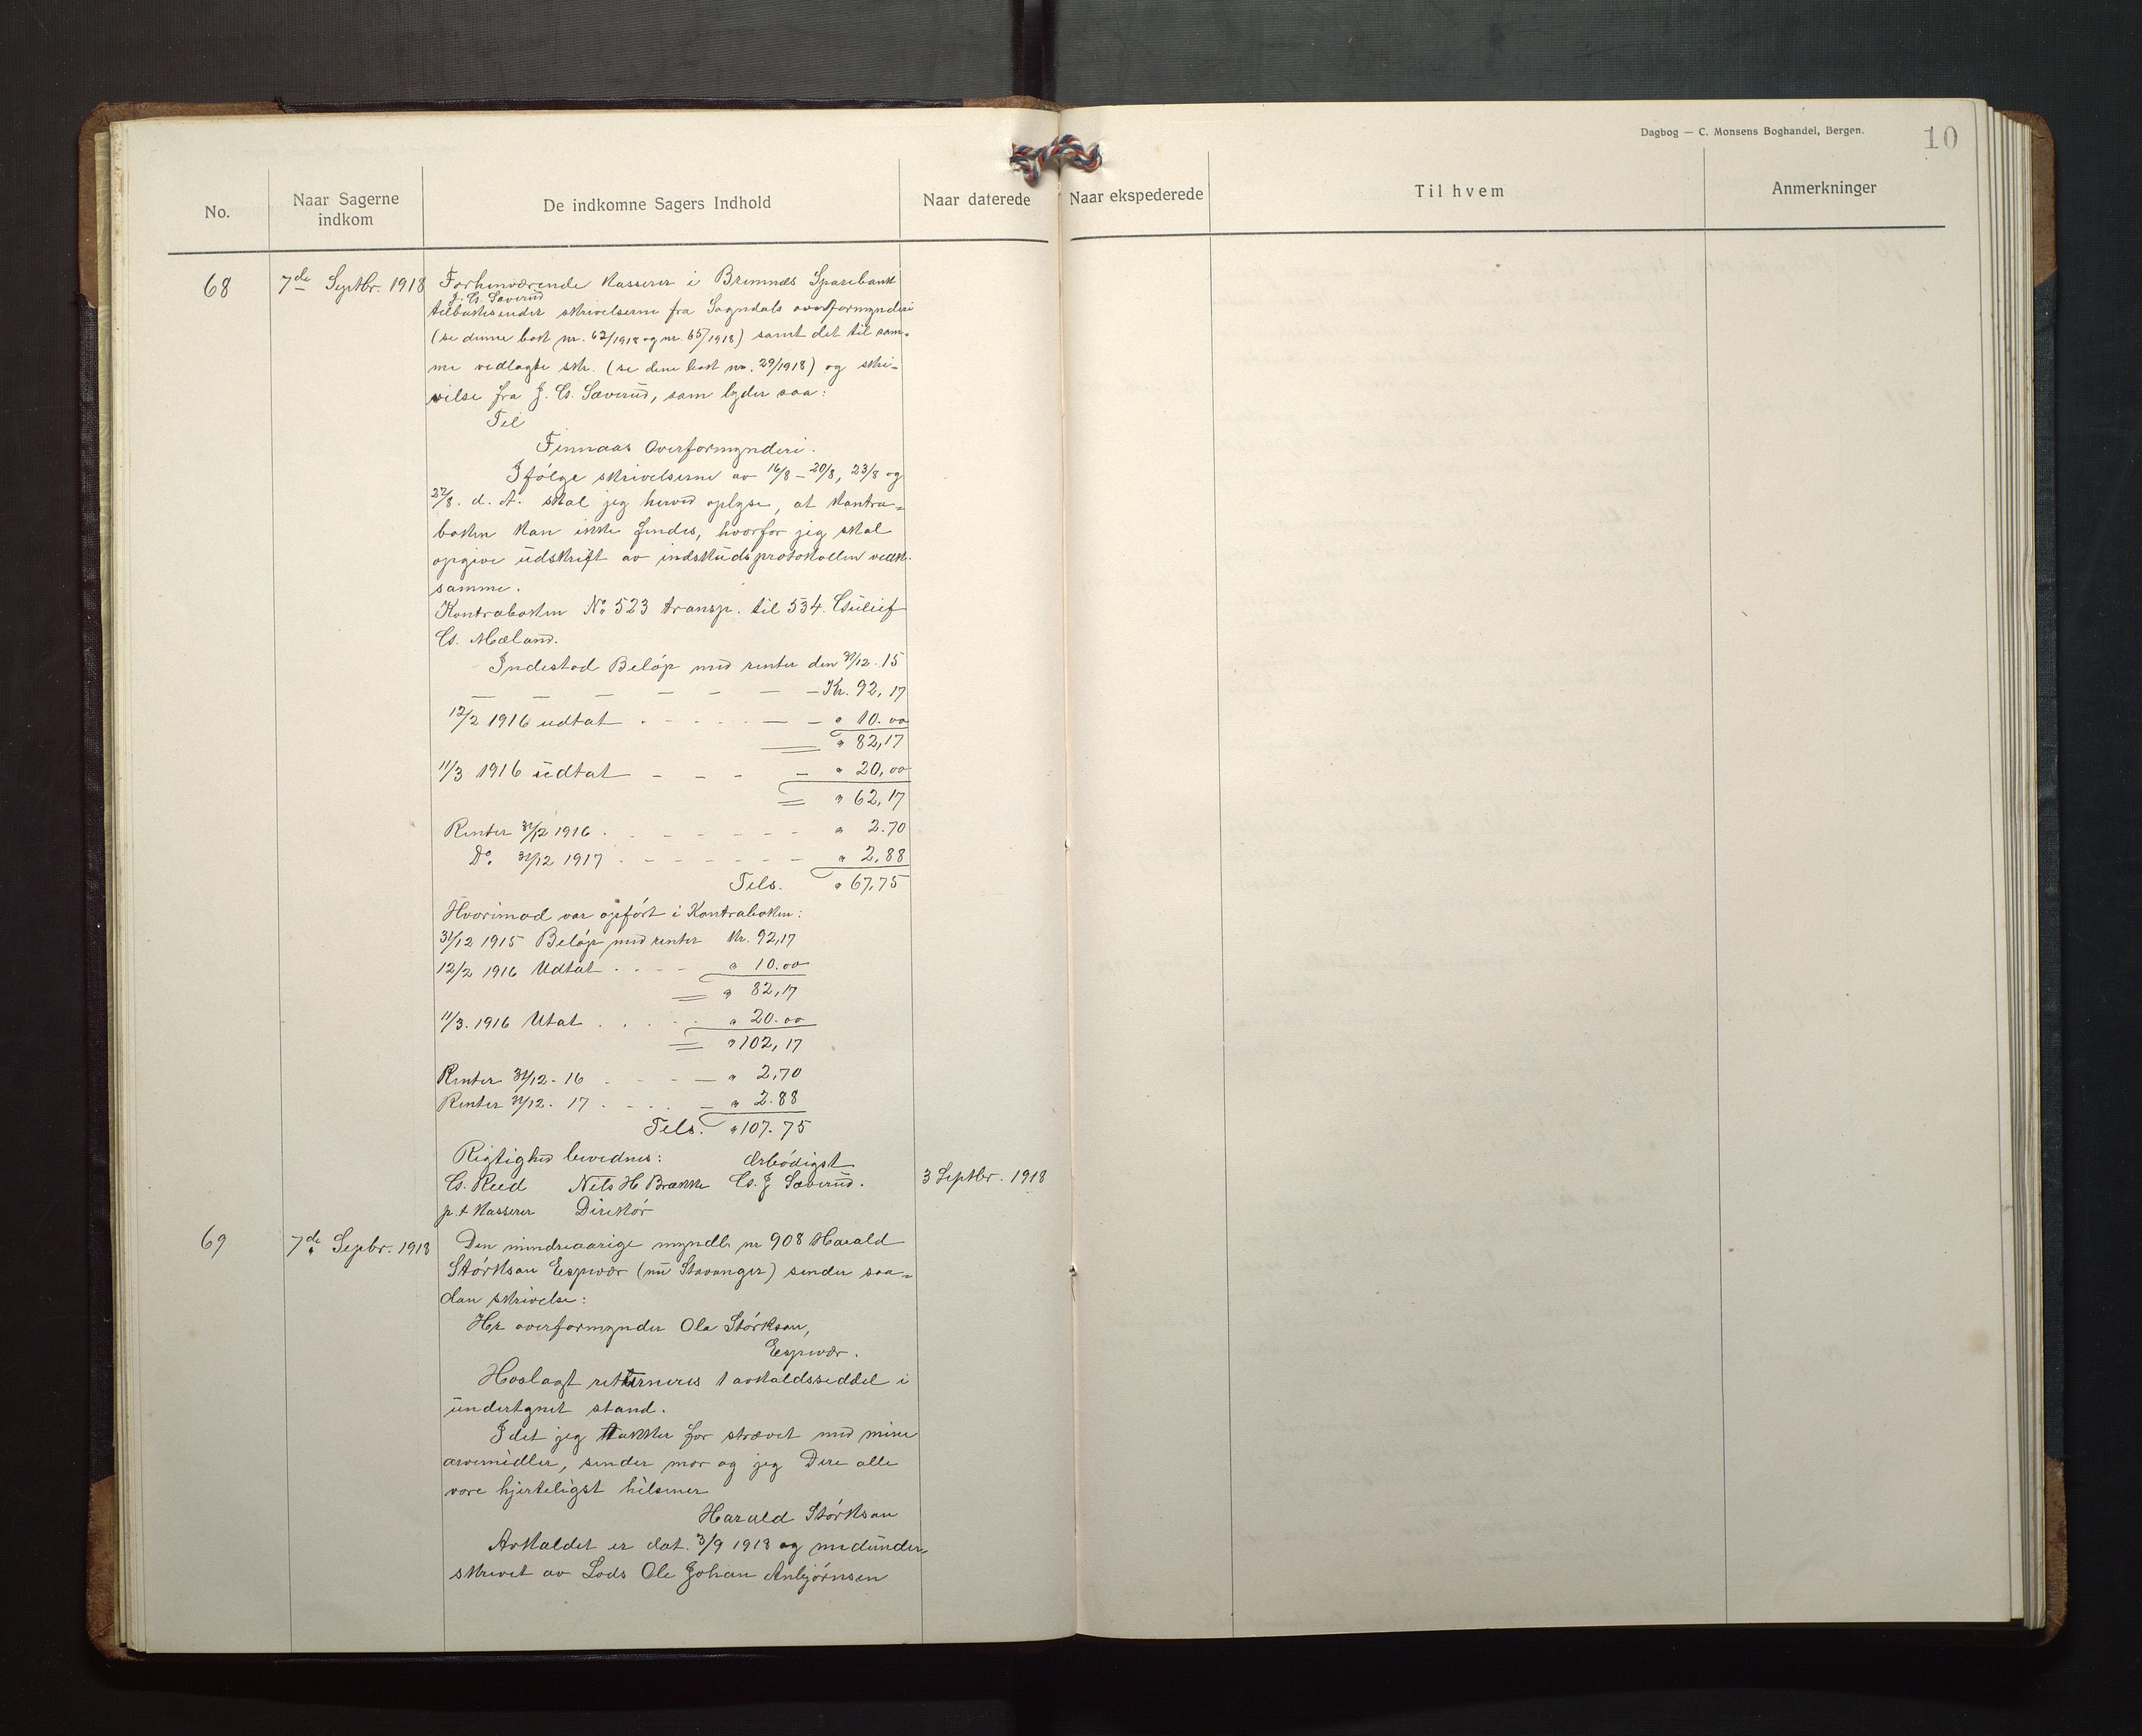 Dagbog — C. Monsens Boghandel, Bergen.
10
No.
Naar Sagerne indkom
De indkomne Sagers Indhold
Naar daterede
Naar ekspederede
Til hvem
Anmerkninger
68
7de Septbr. 1918
Forhenværende kasserer i Bremnes Sparebank
J. G. Sæverud
tilbakesender skrivelserne fra Sogndals overformynderi
(se denne bok nr. 62/1918 og nr. 65/1918) samt det til sam-
me vedlagte skr. (se dene bok nr. 29/1918) og skri-
velse fra J. G. Sæverud, som lyder saa:
Til
Finnaas Overformynderi.
Ifølge skrivelserne av 16/8 – 20/8, 23/8 og
27/8. d. A. skal jeg herved oplyse, at kontra-
boken kan ikke findes, hvorfor jeg skal
opgive udskrift av indskudsprotokollen vedk.
samme.
Kontraboken No 523 transp. til 534. Guleif
G. Mæland.
Indestod Beløp med renter den 31/12. 15
— — — — — — — Kr. 92,17
12/2 1916 udtat . - - - - — — " 10.00
" 82,17
11/3 1916 udtat — - - — " 20,00
" 62,17
Renter 31/12 1916 . - - - - - - " 2.70
Do. 31/12 1917 . - - - - - — " 2,88
Tils. " 67,75
Hvorimod var opført i Kontraboken:
31/12 1915 Beløp med renter Kr. 92,17
12/2 1916 Udtat . . - - " 10.00
" 82,17
11/3. 1916 Utat . . . . . " 20.00
" 102,17
Renter 31/12 - 16 . - - — " 2,70
Renter 31/12. 17 . - . . — " 2.88
Tils. " 107.75
Rigtighed bevidnes: Ærbødigst
G. Reed Nils H Brække G. J Sæverud.
3 Septbr. 1918
p.t Kasserer Direktør
69
7de Sepbr. 1918
Den mindreaarige myndl. nr 908 Harald
Størksen Espevær (nu Stavanger) sender saa-
dan skrivelse:
Hr overformynder Ola Størksen,
Espevær.
Hoslagt returneres 1 avkaldsseddel i
undertgnet stand.
Idet jeg takker for strævet med mine
arvemidler, sender mor og jeg Dere alle
vore hjerteligst hilsener
Harald Størksen
Avkaldet er dat. 3/9 1918 og medunder-
skrevet av Lods Ole Johan Anbjørnsen